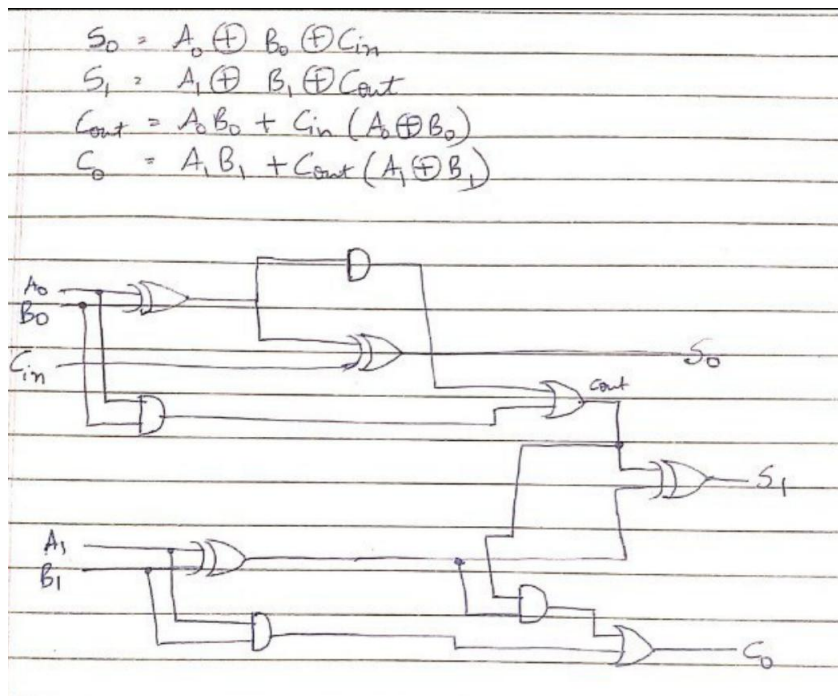 S₀ = A₀ ⊕ B₀ ⊕ Cin
S₁ = A₁ ⊕ B₁ ⊕ Cout
Cout = A₀B₀ + Cin (A₀⊕B₀)
C₀ = A₁B₁ + Cout (A₁⊕B₁)
A₀
B₀
Cin
S₀
Cout
S₁
A₁
B₁
C₀